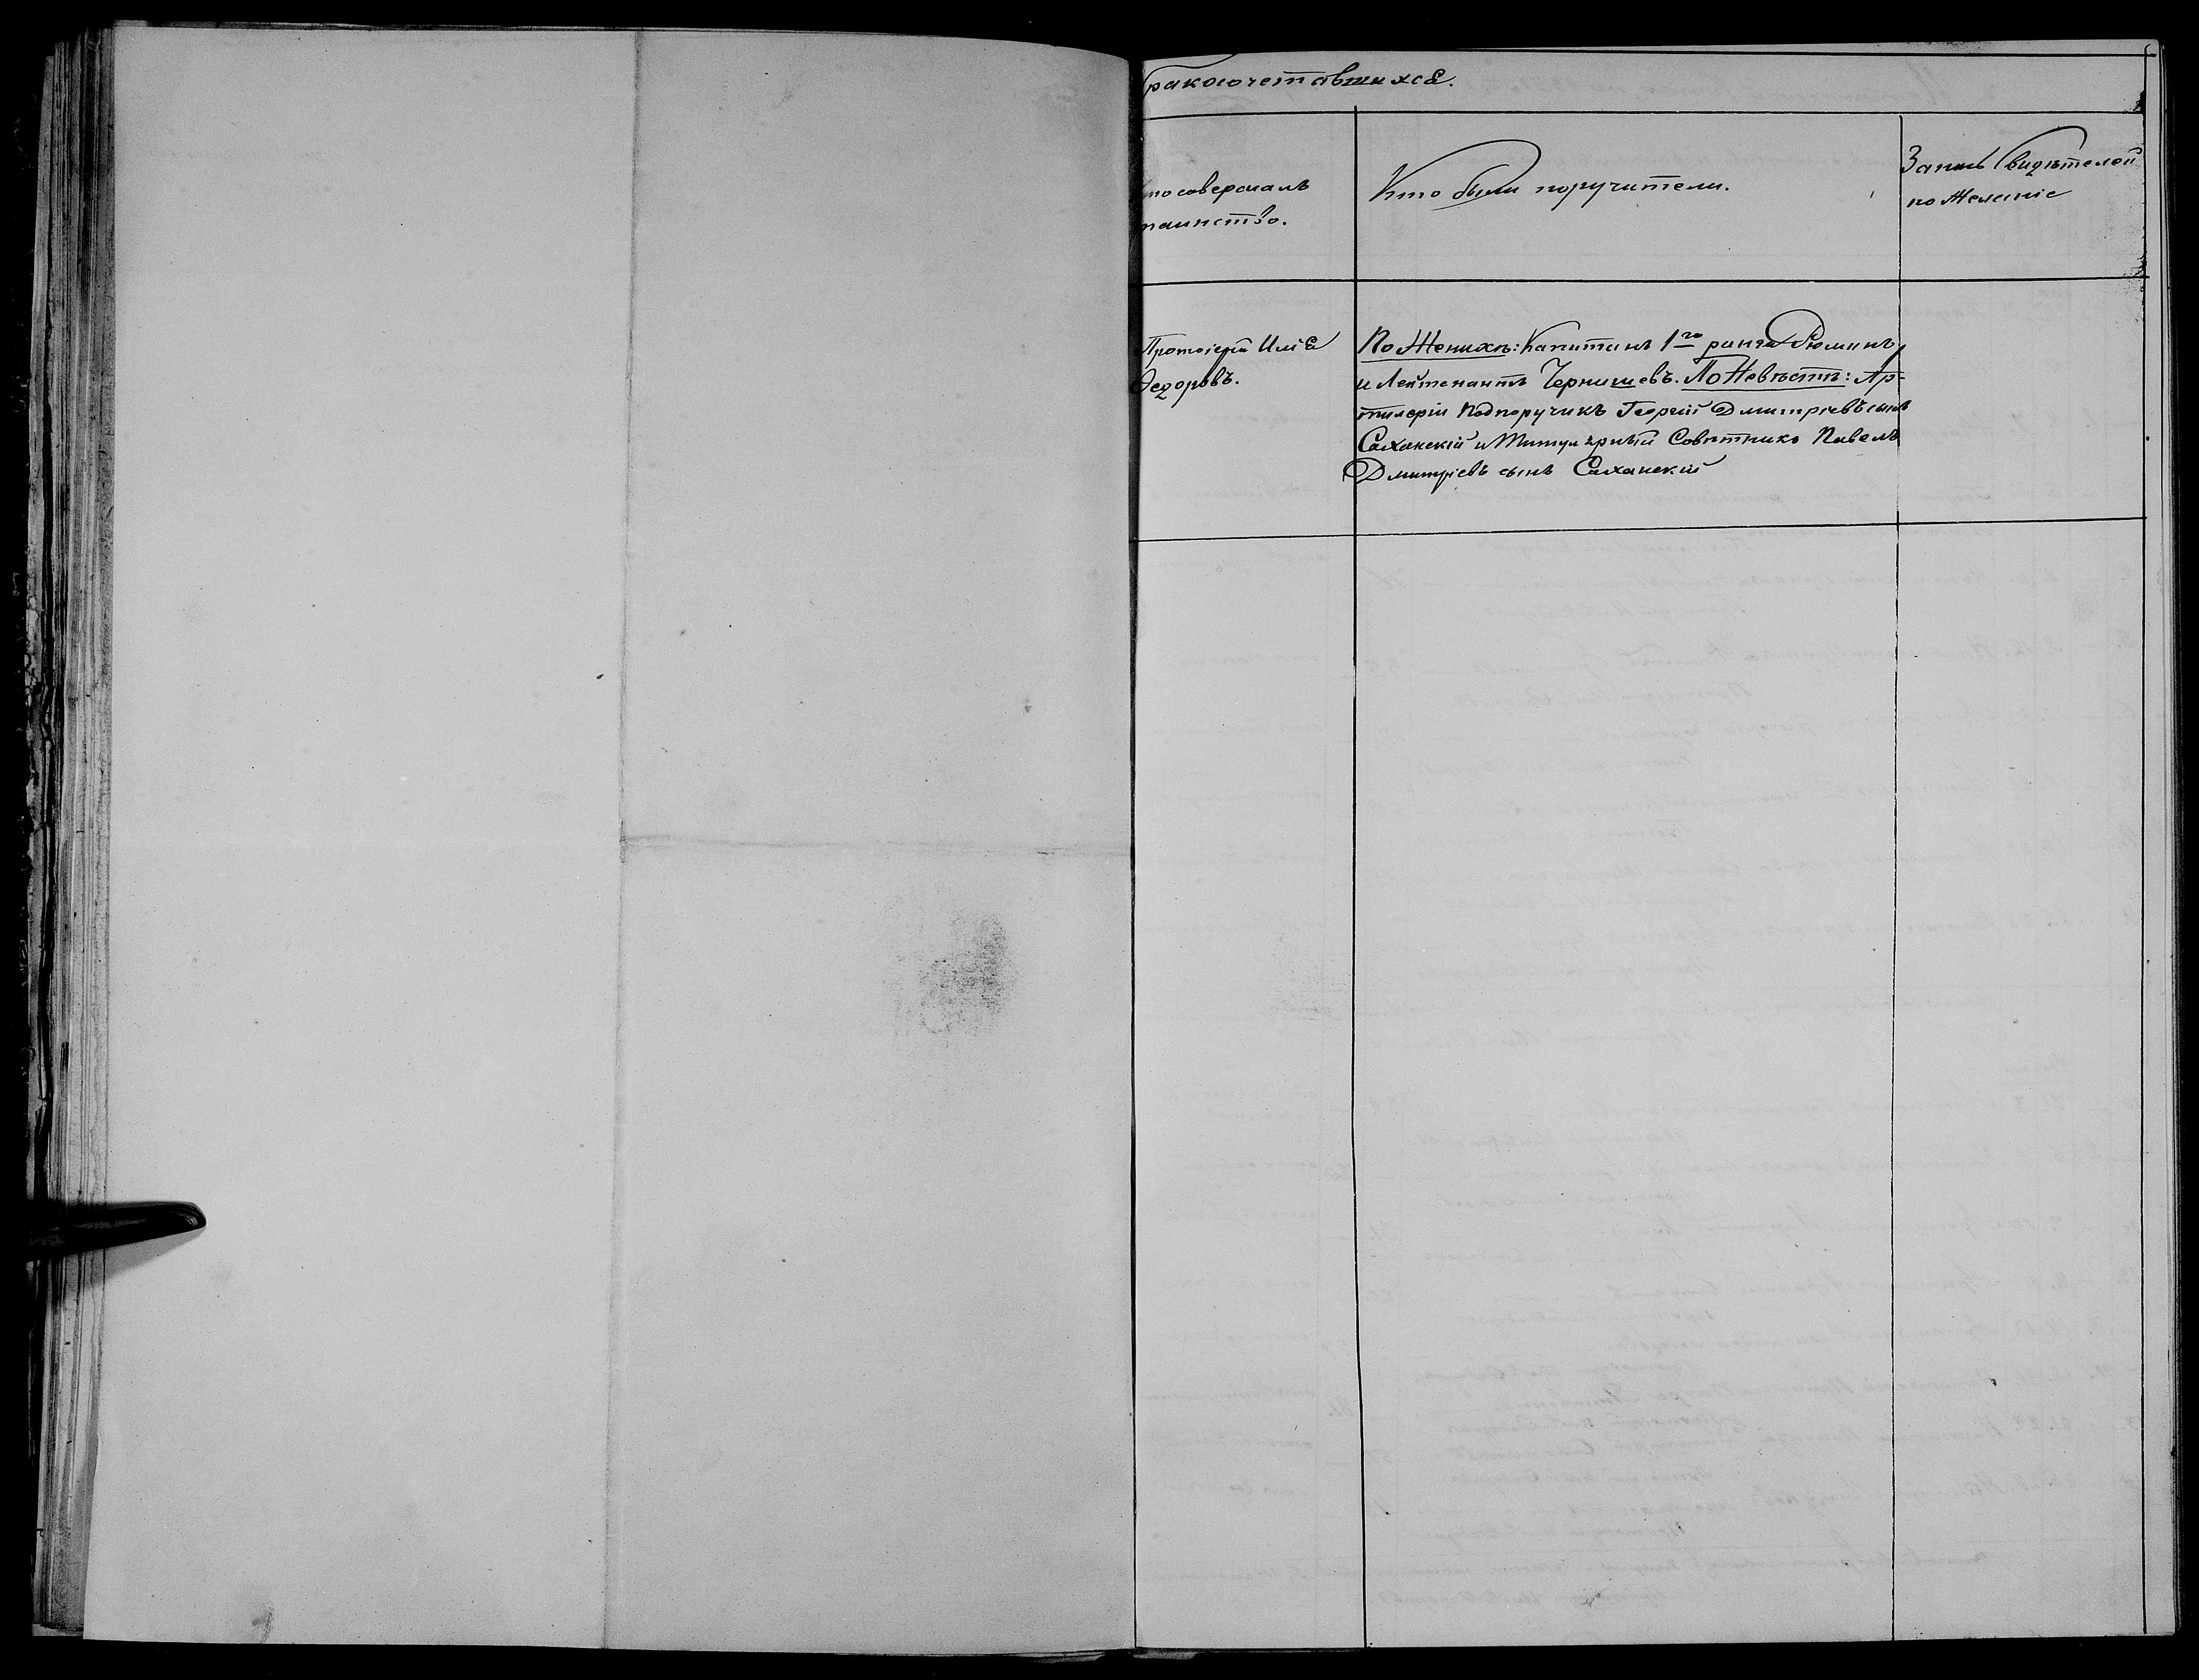 бракосочетавшихся.
Кто совершалъ
таинство.
Кто были поручители.
Запись Свидѣтелей
по Желанію
Протоіерей Илія
Ѳедоровъ.
По Женихѣ: Капитанъ 1го ранга Рюминъ
и Лейтенантъ Чернишевъ. По Невѣстѣ: Ар-
тилеріи Подпоручикъ Георгій Дмитріевъ сынъ
Саханскій и Титулярный Совѣтникъ Павелъ
Дмитріевъ сынъ Саханскій